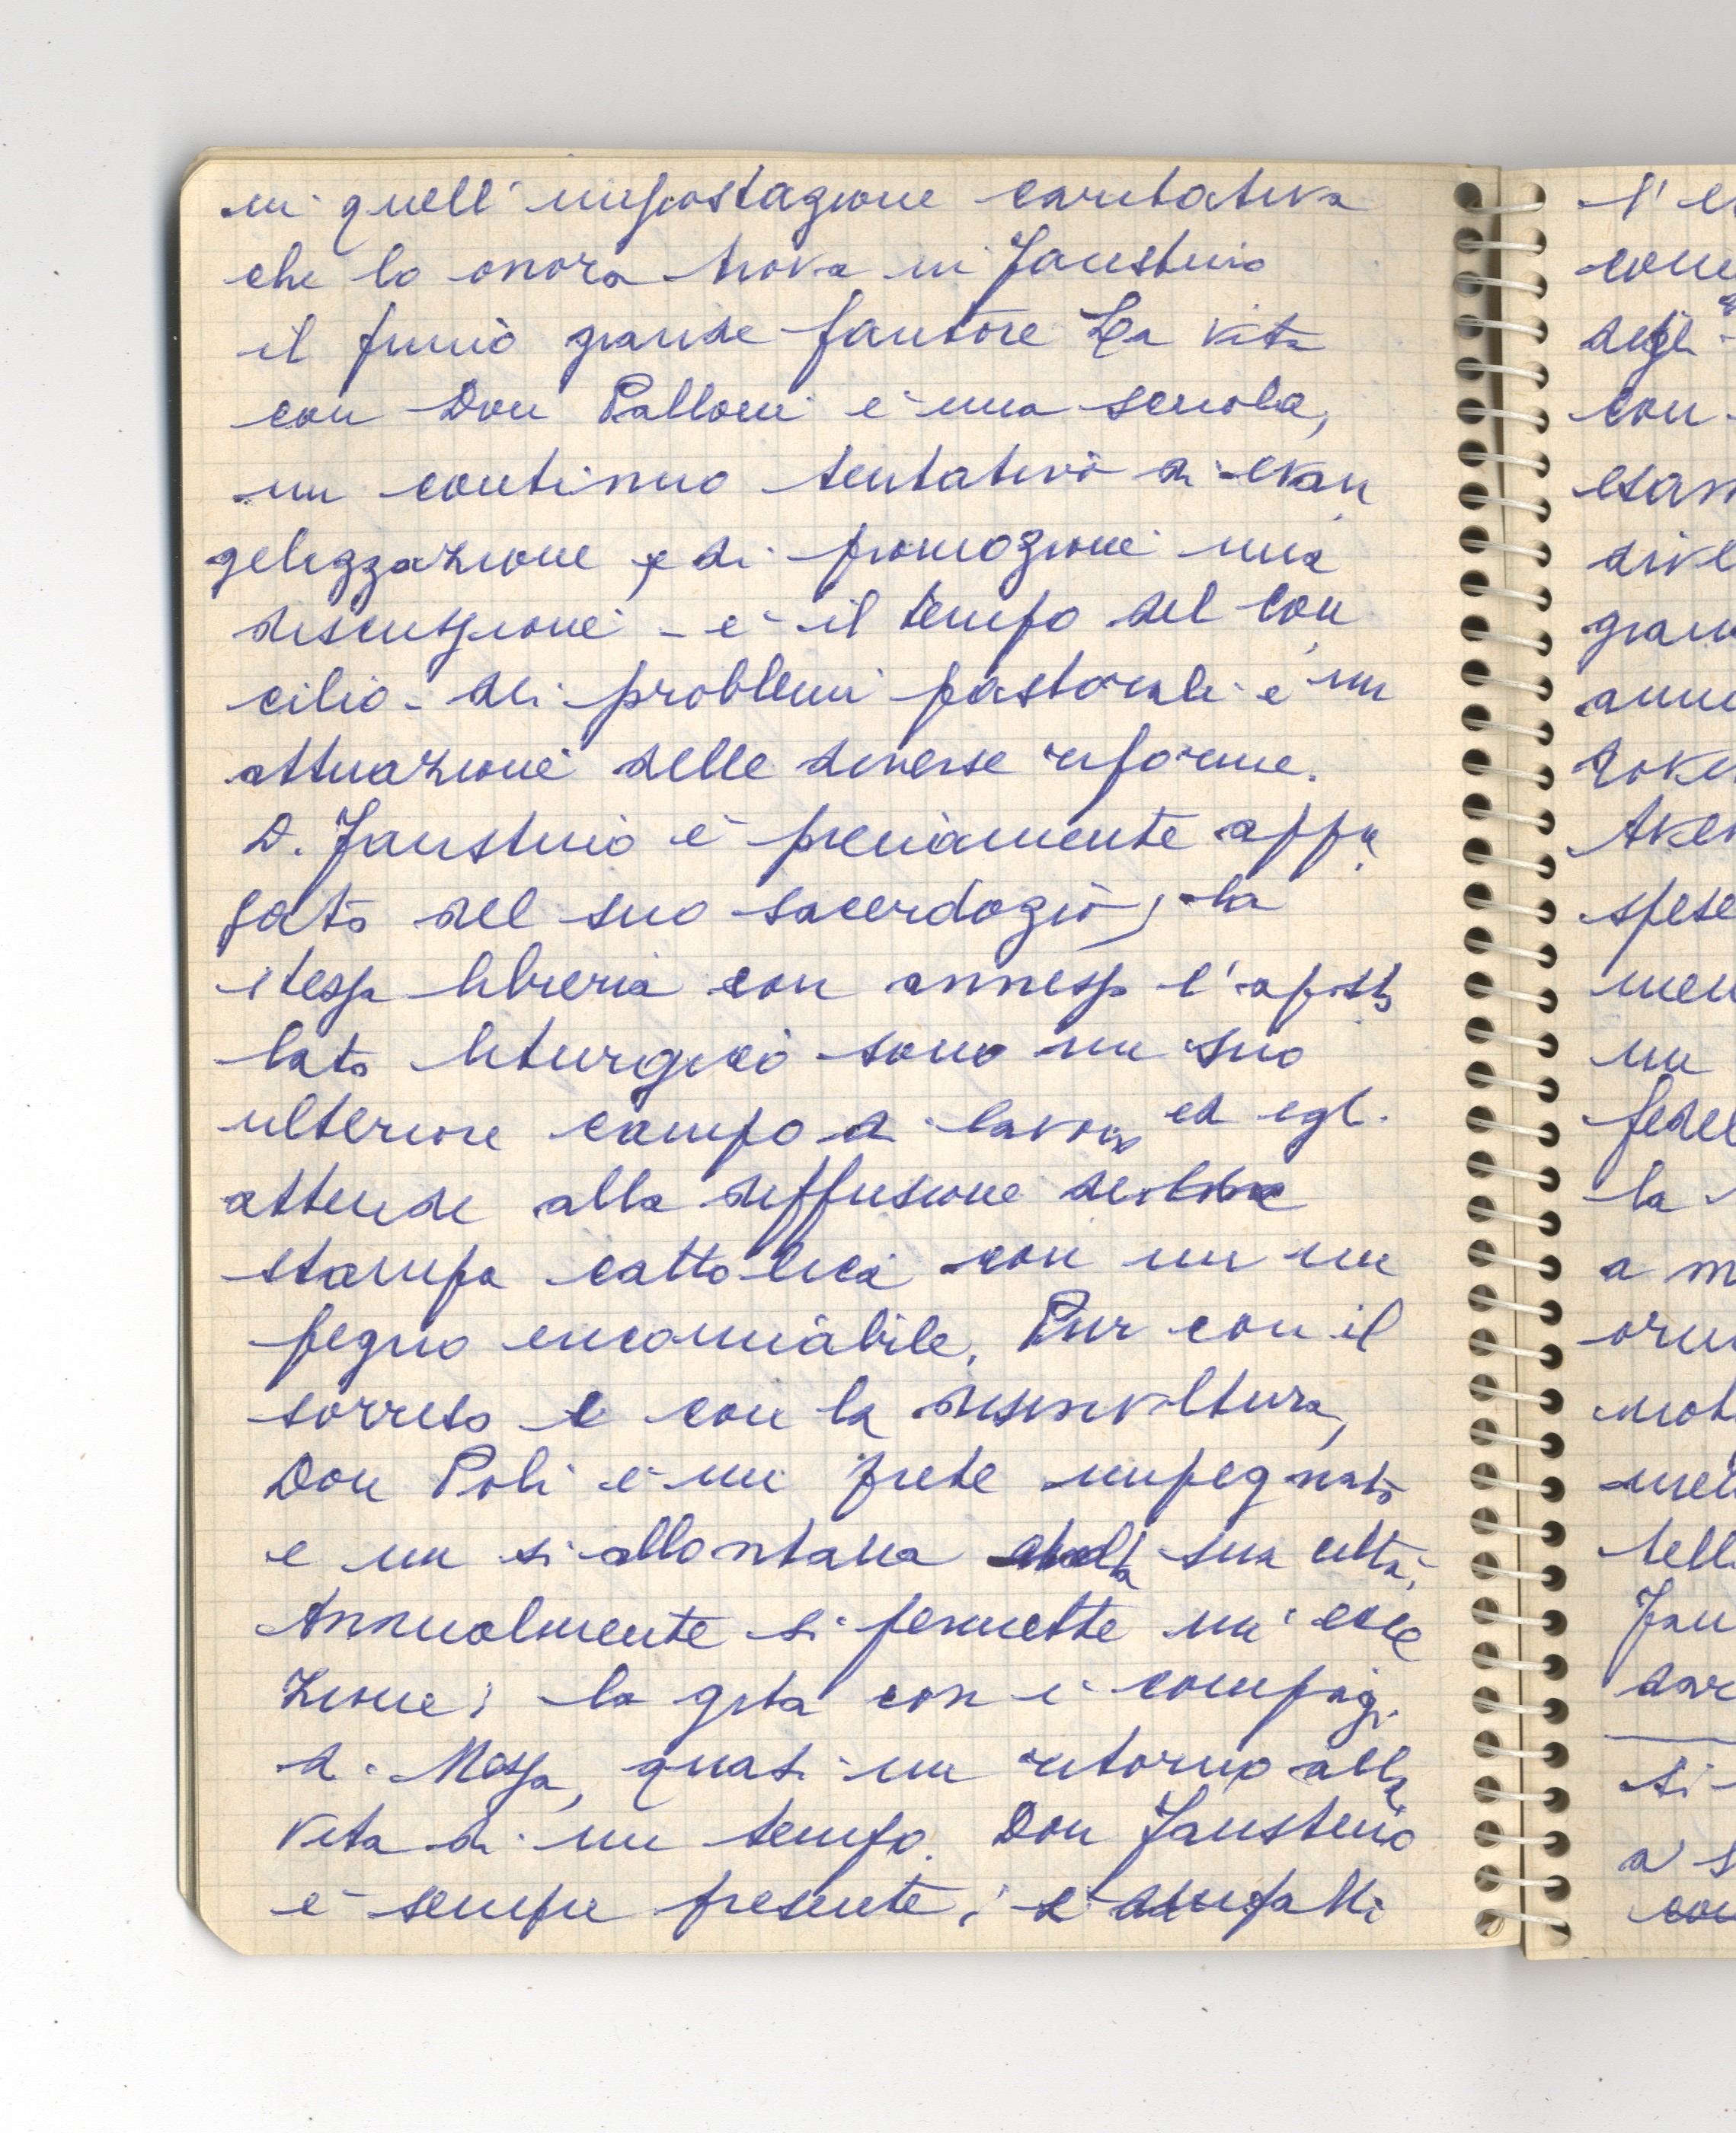 in quell'impostazione caritativa
che lo onora trova in Faustino
il primo grande fautore La vita
con Don Palloni è una scuola,
un continuo tentativo di evan
gelizzazione e di promozione una
discussione - è il tempo del Con
cilio - dei problemi pastorali e un
attuazione delle diverse riforme.
D. Faustino è pienamente appa
gato del suo sacerdozio, la
stessa libreria con annesso l'aposto
lato liturgico sono un suo
ulteriore campo di lavoro ed egli
attende alla diffusione della
stampa cattolica con un im
pegno encomiabile. Pur con il
sorriso e con la disinvoltura,
Don Poli è un prete impegnato
e non si allontana dalla sua città.
Annualmente si permette un'ecce
zione: la gita con i compagni
di Messa, quasi un ritorno alla
vita di un tempo. Don Faustino
è sempre presente; è
l'e
con
degli
con
esam
dive
gran
ann
spese
men
un
fedel
la
a m
tell
Fau
dar
si
a s